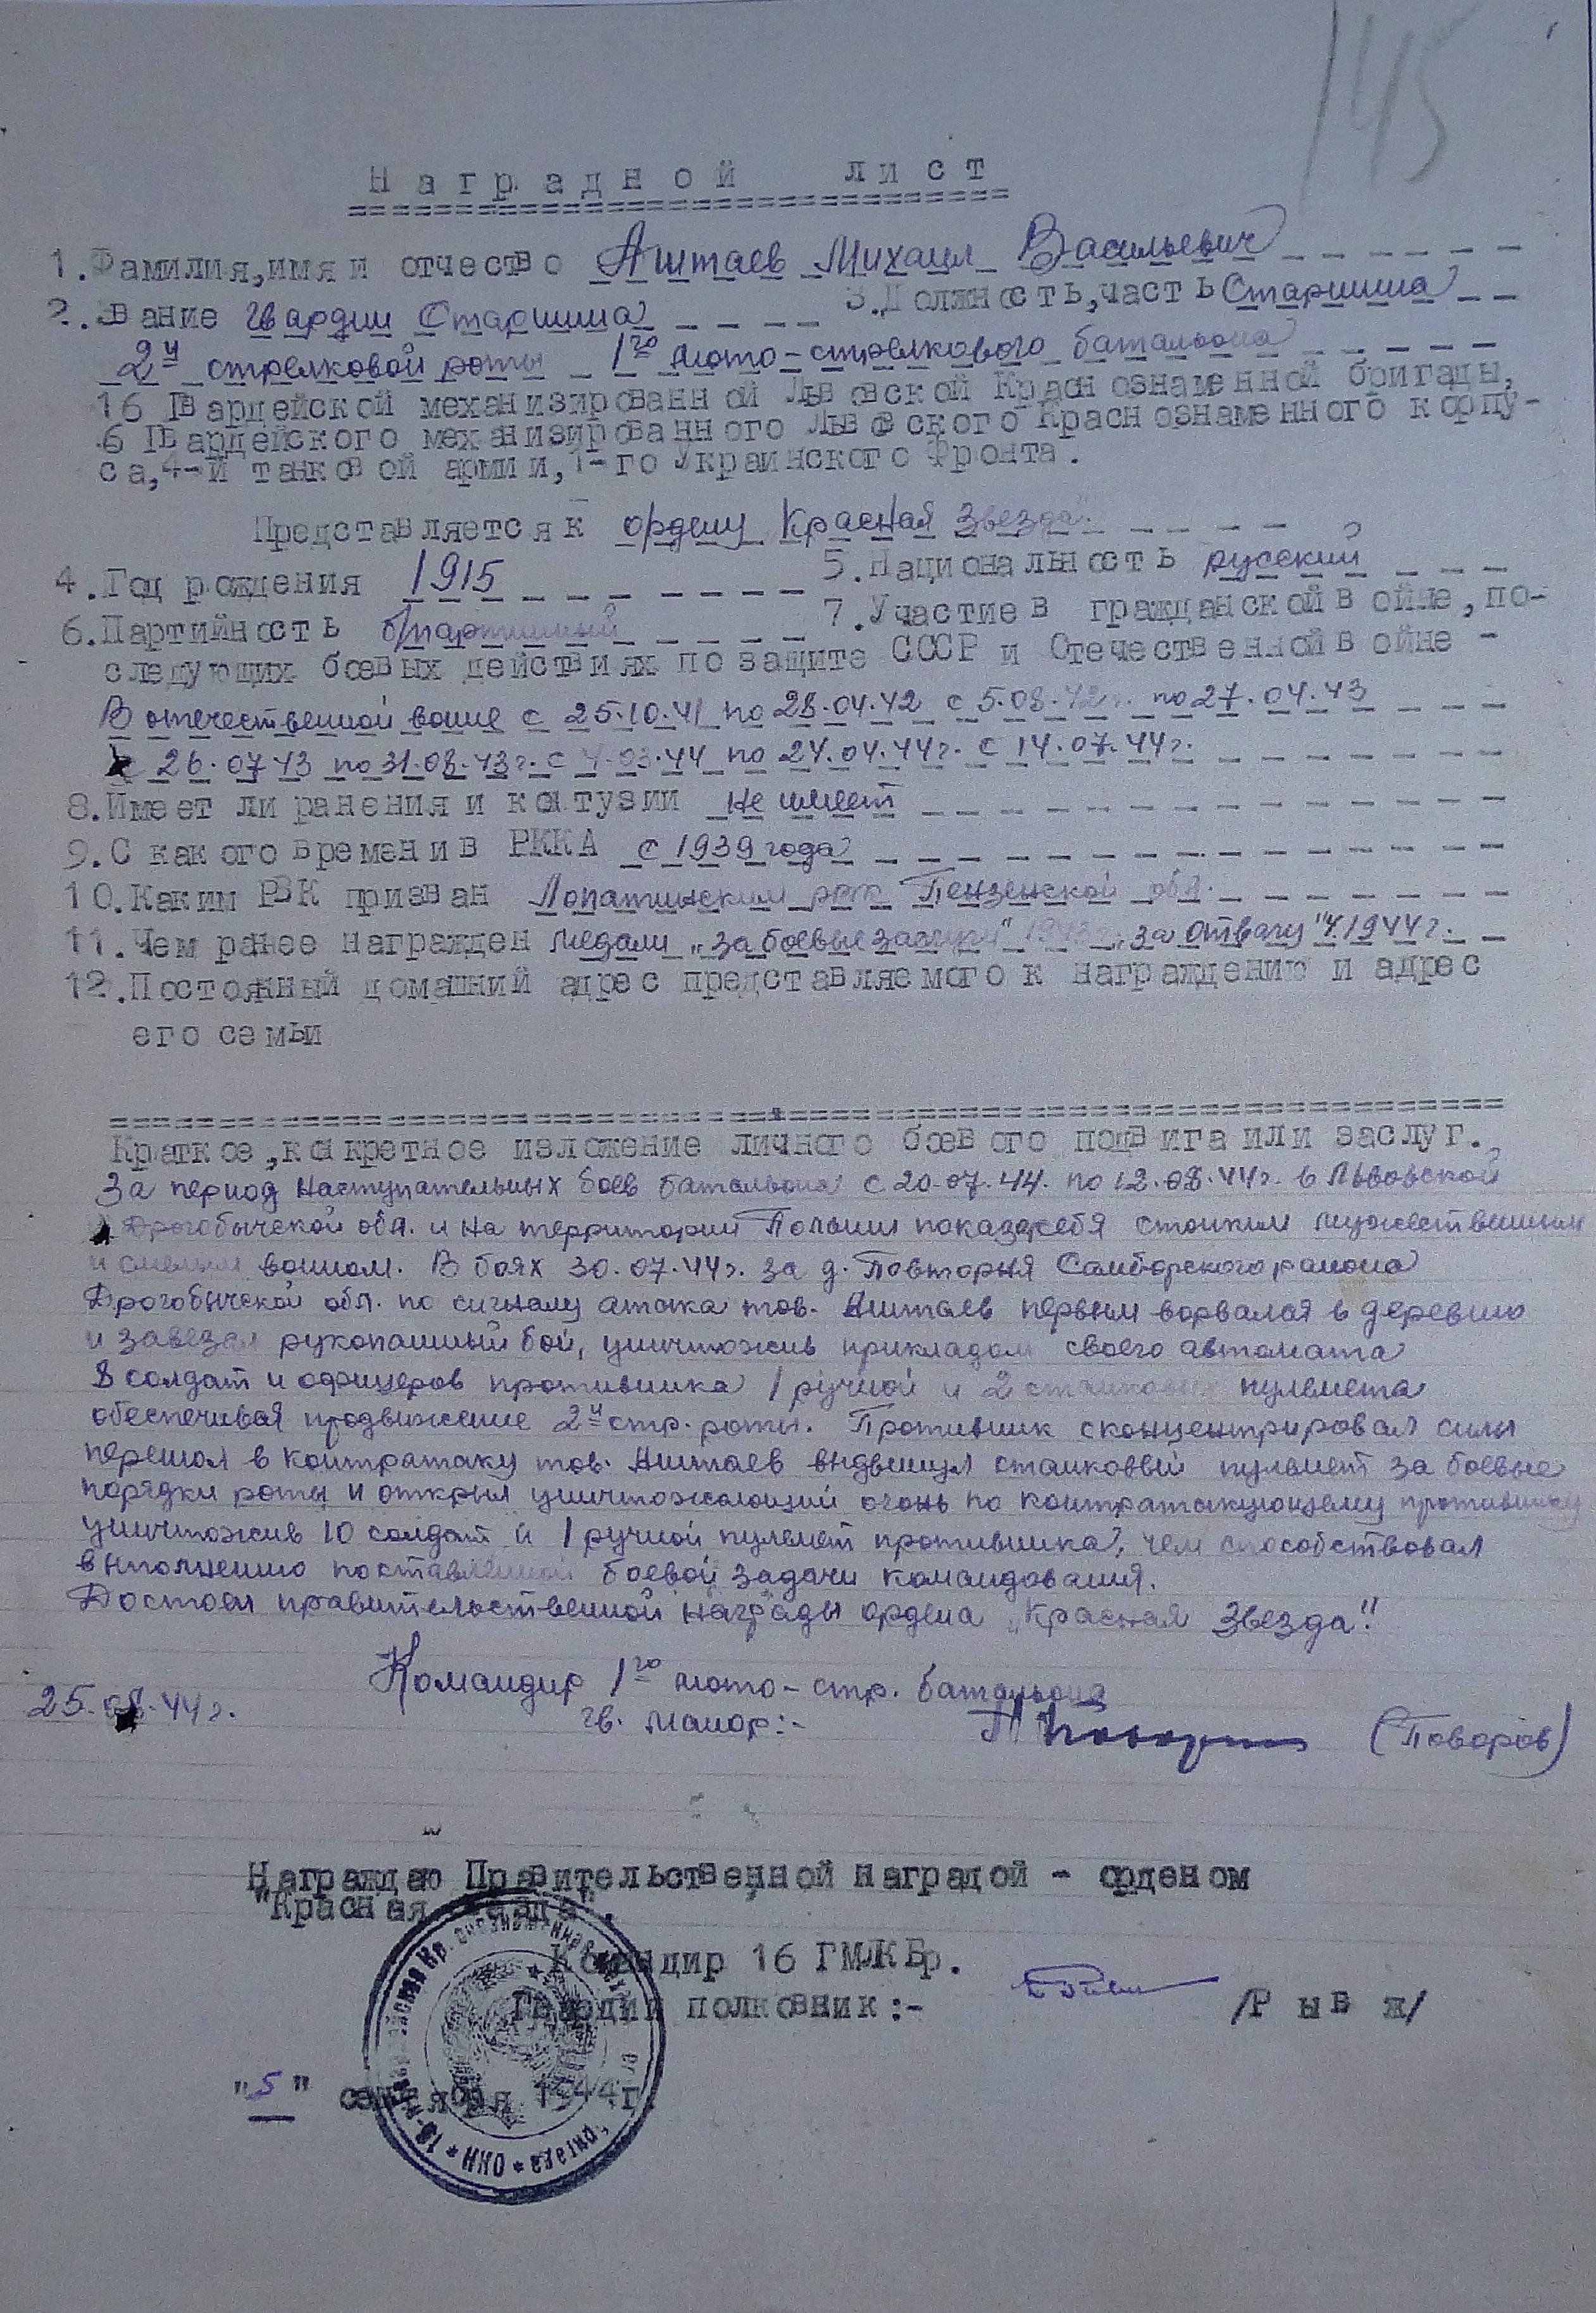 145
Наградной лист
1. Фамилия, имя и отчество Аштаев Михаил Васильевич
2. Звание Гвардии Старшина 3. Должность, часть Старшина
2й стрелковой роты 1го мото-стрелкового батальона
16 Гвардейской механизированной Львовской Краснознаменной бригады,
6 Гвардейского механизированного Львовского Краснознаменного корпу-
са, 4-й танковой армии, 1-го Украинского Фронта.
Представляется к ордену Красная Звезда
4. Год рождения 1915 5. Национальность русский
6. Партийность б/партийный 7. Участие в гражданской войне, по-
следующих боевых действиях по защите СССР и Отечественной войне -
В отечественной воине с 25.10.41 по 28.04.42 с 5.08.42г. по 27.04.43
26.07.43 по 31.08.43г. с 4.03.44 по 24.04.44г. с 14.07.44г.
8. Имеет ли ранения и контузии не имеет
9. С какого времени в РККА с 1939 года
10. Каким РВК призван Лопатинским рвк Пензенской обл.
11. Чем ранее награжден медали „за боевые заслуги" 1943г. „за отвагу" 1944г.
12. Постоянный домашний адрес представляемого к награждению и адрес
его семьи
Краткое, конкретное изложение личного боевого подвига или заслуг.
За период наступательных боев батальона с 20.07.44. по 12.08.44г. в Львовской
Дрогобычской обл. и на территории Польши показал себя стоиким мужественным
и смелым воином. В боях 30.07.44г. за д. Повторня Самборского раиона
Дрогобычской обл. по сигналу атака тов. Аштаев первым ворвался в деревню
и завезал рукопашный бой, уничтожив прикладом своего автомата
8 солдат и офицеров противника 1 ручной и 2 станковых пулемета
обеспечивая продвижение 2й стр. роты. Противник сконцентрировал силы
перешол в контратаку тов. Аштаев выдвинул станковый пулемет за боевые
порядки роты и открыл уничтожающий огонь по контратакующему противнику
уничтожив 10 солдат и 1 ручной пулемет противника, чем способствовал
выполнению поставленной боевой задачи командования.
Достоен правительственной награды ордена „Красная Звезда"
Командир 1го мото-стр. батальона
25.08.44г. гв. маиор:- (Поворов)
Награждаю Правительственной наградой - орденом
"Красная Звезда".
Командир 16 ГМЖБр.
Гвардии полковник:- /Рывж/
"5" сентября 1944г.